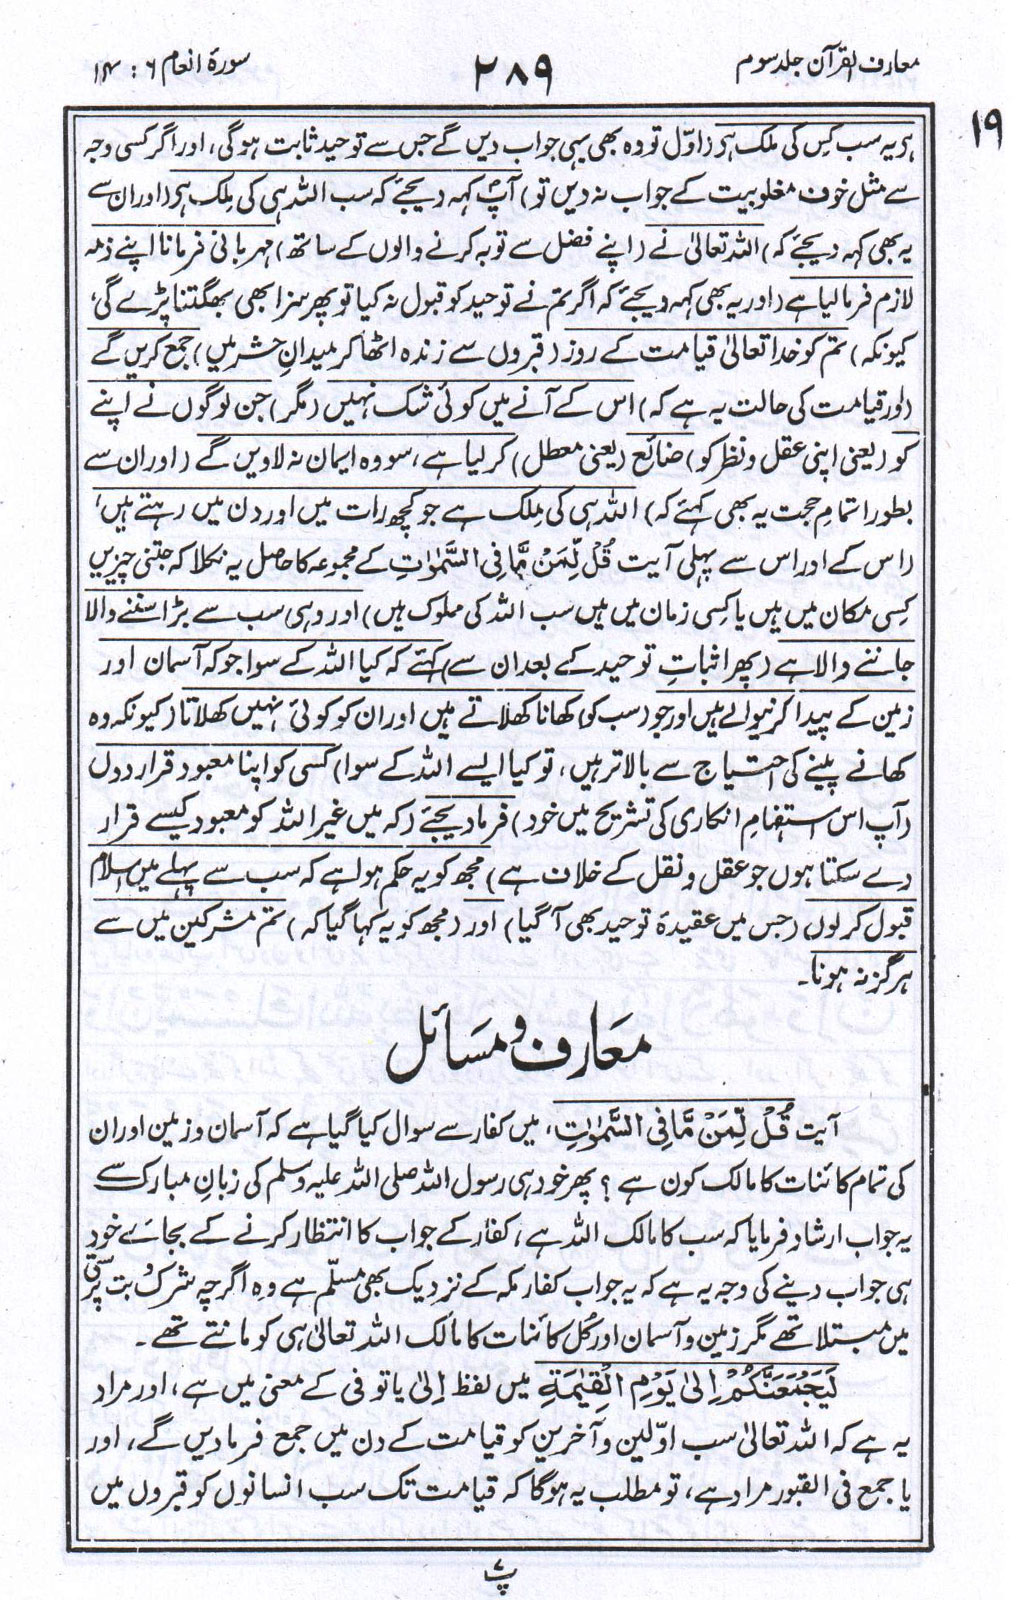 معارف القرآن جلد سوم
۲۸۹
سورۂ انعام ۶ : ۱۴
۱۹
ہی یہ سب کِس کی مِلک ہی (اوّل تو وہ بھی یہی جواب دیں گے جس سے توحید ثابت ہوگی، اور اگر کسی وجہ
سے مثل خوف مغلوبیت کے جواب نہ دیں تو) آپؐ کہہ دیجئے کہ سب اللہ ہی کی مِلک ہی (اور ان سے
یہ بھی کہہ دیجئے کہ) اللہ تعالیٰ نے (اپنے فضل سے توبہ کرنے والوں کے ساتھ) مہربانی فرمانا اپنے ذمہ
لازم فرما لیا ہے (اور یہ بھی کہہ دیجئے کہ اگر تم نے توحید کو قبول نہ کیا تو پھر سزا بھی بھگتنا پڑے گی،
کیونکہ) تم کو خدا تعالیٰ قیامت کے روز (قبروں سے زندہ اٹھا کر میدانِ حشر میں) جمع کریں گے
(اور قیامت کی حالت یہ ہے کہ) اس کے آنے میں کوئی شک نہیں (مگر) جن لوگوں نے اپنے
کو (یعنی اپنی عقل و نظر کو) ضائع (یعنی معطل) کر لیا ہے، سو وہ ایمان نہ لاویں گے (اور ان سے
بطور اتمامِ حجت یہ بھی کہئے کہ) اللہ ہی کی مِلک ہے جو کچھ رات میں اور دن میں رہتے ہیں،
(اس کے اور اس سے پہلی آیت قُلْ لِّمَنْ مَّا فِی السَّمٰوٰتِ کے مجموعہ کا حاصل یہ نکلا کہ جتنی چیزیں
کِسی مکان میں ہیں یا کِسی زمان میں ہیں سب اللہ کی مملوک ہیں) اور وہی سب سے بڑا سننے والا
جاننے والا ہے (پھر اثباتِ توحید کے بعد ان سے) کہئے کہ کیا اللہ کے سوا جو کہ آسمان اور
زمین کے پیدا کرنیوالے ہیں اور جو (سب کو) کھانا کھلاتے ہیں اور ان کو کوئی نہیں کھلاتا (کیونکہ وہ
کھانے پینے کی احتیاج سے بالاتر ہیں، تو کیا ایسے اللہ کے سوا) کسی کو اپنا معبود قرار دوں
(آپ اس استفہامِ انکاری کی تشریح میں خود) فرما دیجئے (کہ میں غیر اللہ کو معبود کیسے قرار
دے سکتا ہوں جو عقل و نقل کے خلاف ہے) مجھ کو یہ حکم ہوا ہے کہ سب سے پہلے میں اسلام
قبول کر لوں (جس میں عقیدۂ توحید بھی آ گیا) اور (مجھ کو یہ کہا گیا کہ) تم مشرکین میں سے
ہرگز نہ ہونا۔
معارف و مسائل
آیت قُلْ لِّمَنْ مَّا فِی السَّمٰوٰتِ، میں کفار سے سوال کیا گیا ہے کہ آسمان و زمین اور ان
کی تمام کائنات کا مالک کون ہے؟ پھر خود ہی رسول اللہ صلی اللہ علیہ وسلم کی زبانِ مبارک سے
یہ جواب ارشاد فرمایا کہ سب کا مالک اللہ ہے، کفار کے جواب کا انتظار کرنے کے بجائے خود
ہی جواب دینے کی وجہ یہ ہے کہ یہ جواب کفار مکہ کے نزدیک بھی مسلّم ہے وہ اگرچہ شرک و بت پرستی
میں مبتلا تھے مگر زمین و آسمان اور کُل کائنات کا مالک اللہ تعالیٰ ہی کو مانتے تھے۔
لَيَجْمَعَنَّكُمْ اِلٰى يَوْمِ الْقِيٰمَةِ میں لفظ اِلیٰ یا تو فی کے معنی میں ہے، اور مراد
یہ ہے کہ اللہ تعالیٰ سب اوّلین و آخرین کو قیامت کے دن میں جمع فرما دیں گے، اور
یا جمع فی القبور مراد ہے، تو مطلب یہ ہوگا کہ قیامت تک سب انسانوں کو قبروں میں
پ۷